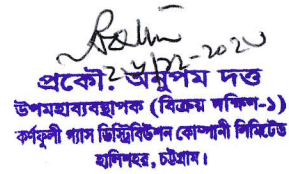 প্রকৌ: অনুপম দত্ত
উপমহাব্যবস্থাপক (বিক্রয় দক্ষিণ-১)
কর্ণফুলী গ্যাস ডিস্ট্রিবিউশন কোম্পানী লিমিটেড
হালিশহর, চট্টগ্রাম।